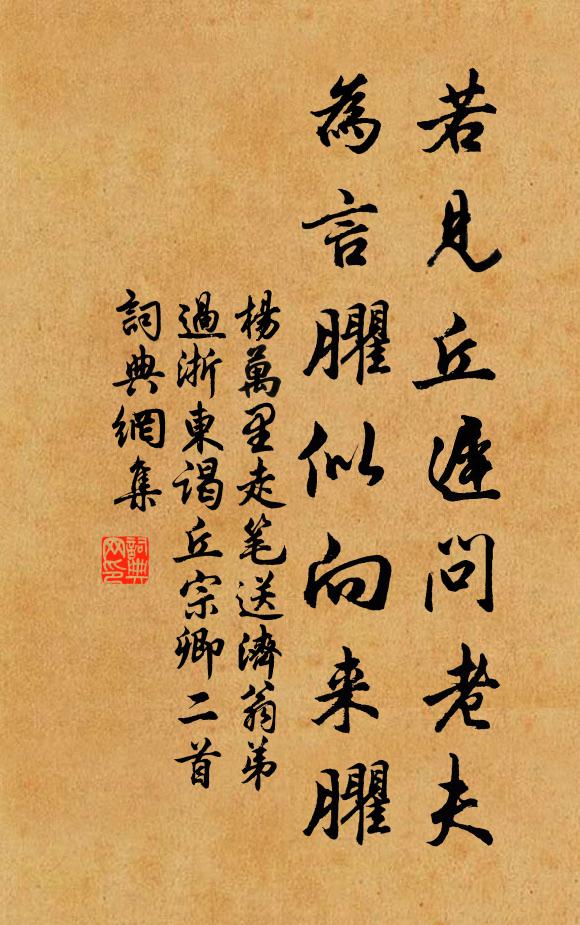 若見丘遲問老夫
為言臞似向来臞
楊萬里走笔送濟翁弟
過浙東謁丘宗卿二首
詞典網集
詞典
网印